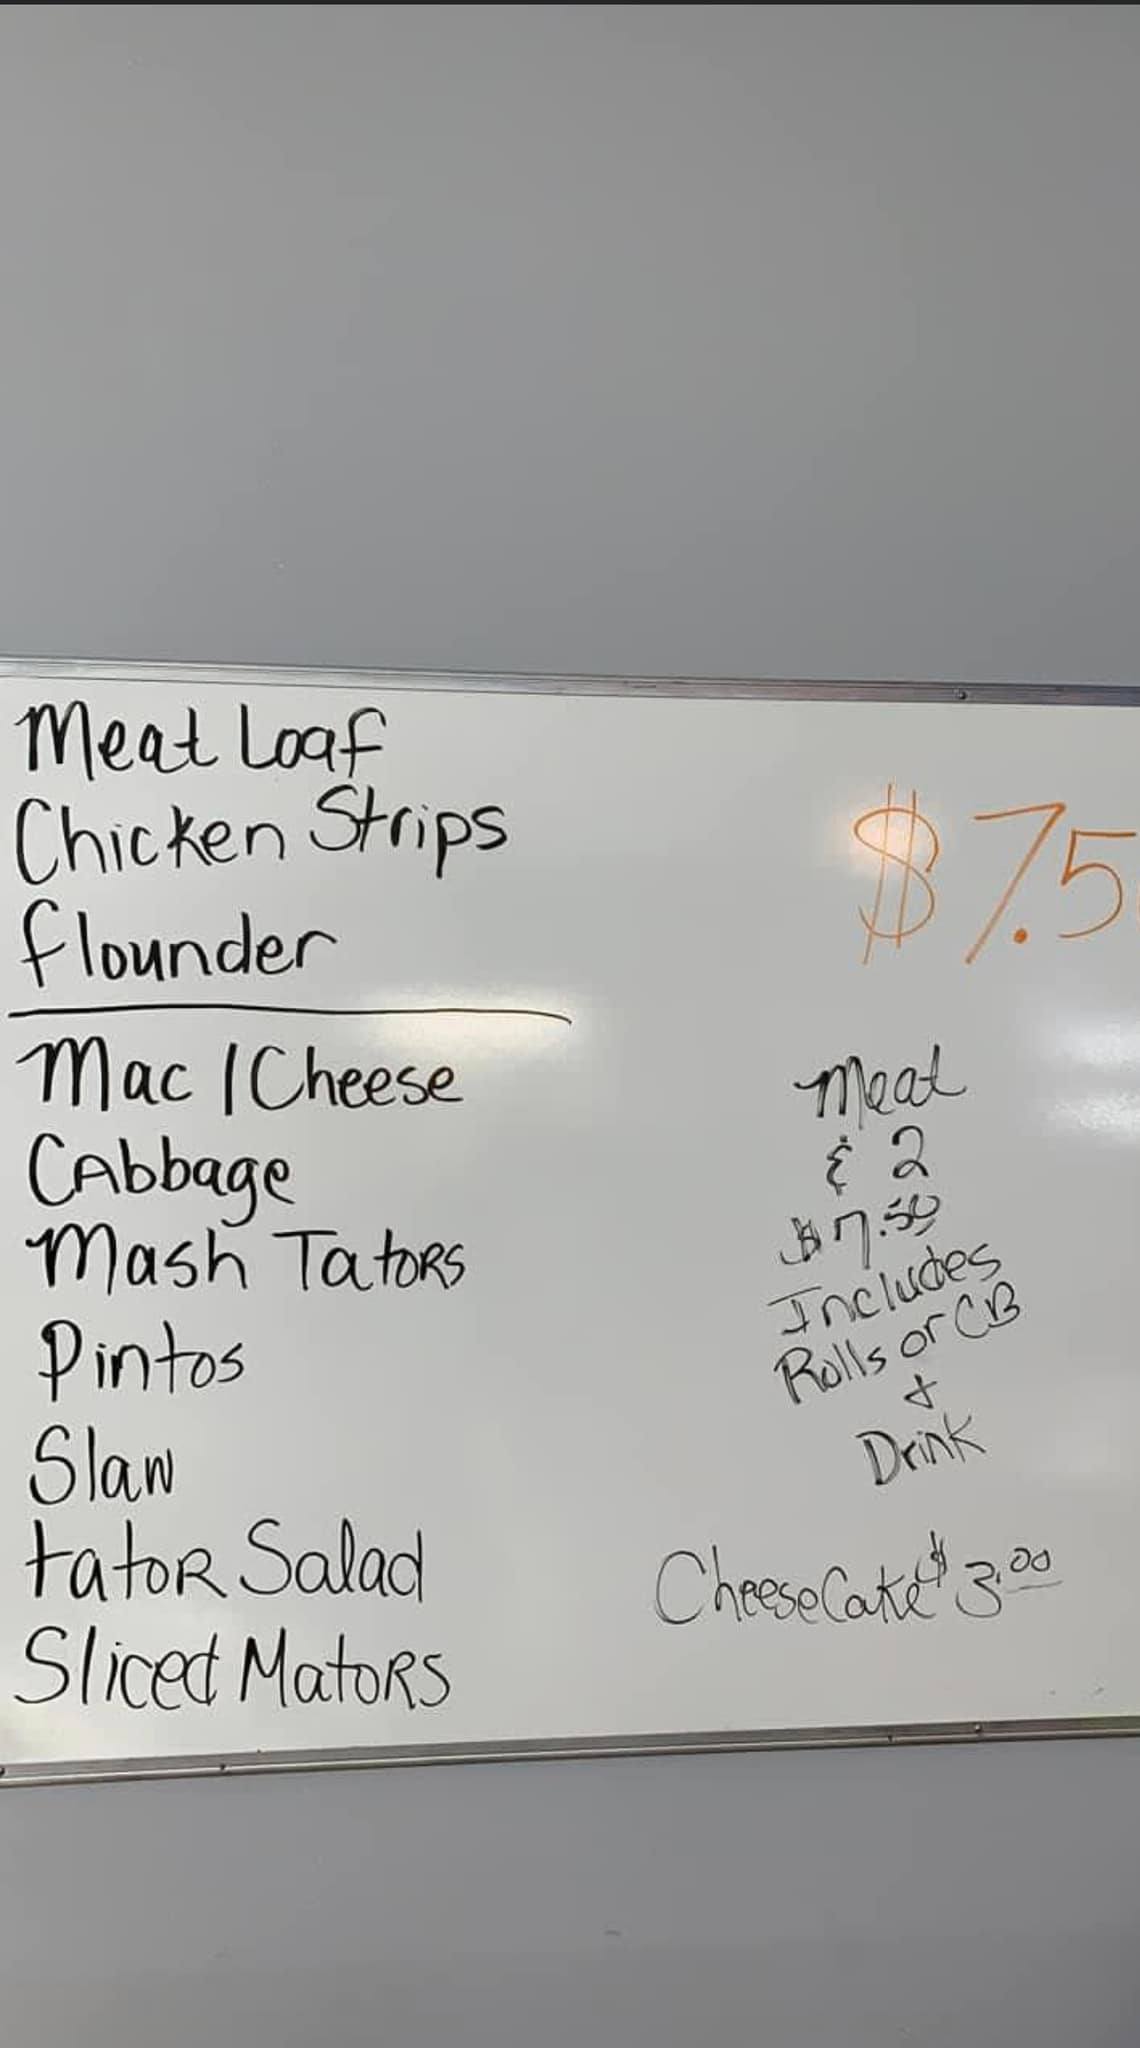 Meat Loaf
Chicken Strips
flounder
Mac / Cheese
CAbbage
Mash TatoRS
Pintos
Slaw
tatoR Salad
Sliced MatoRS
$7.5
Meat
& 2
$7.50
Includes
Rolls or CB
+
Drink
CheeseCake $3.00